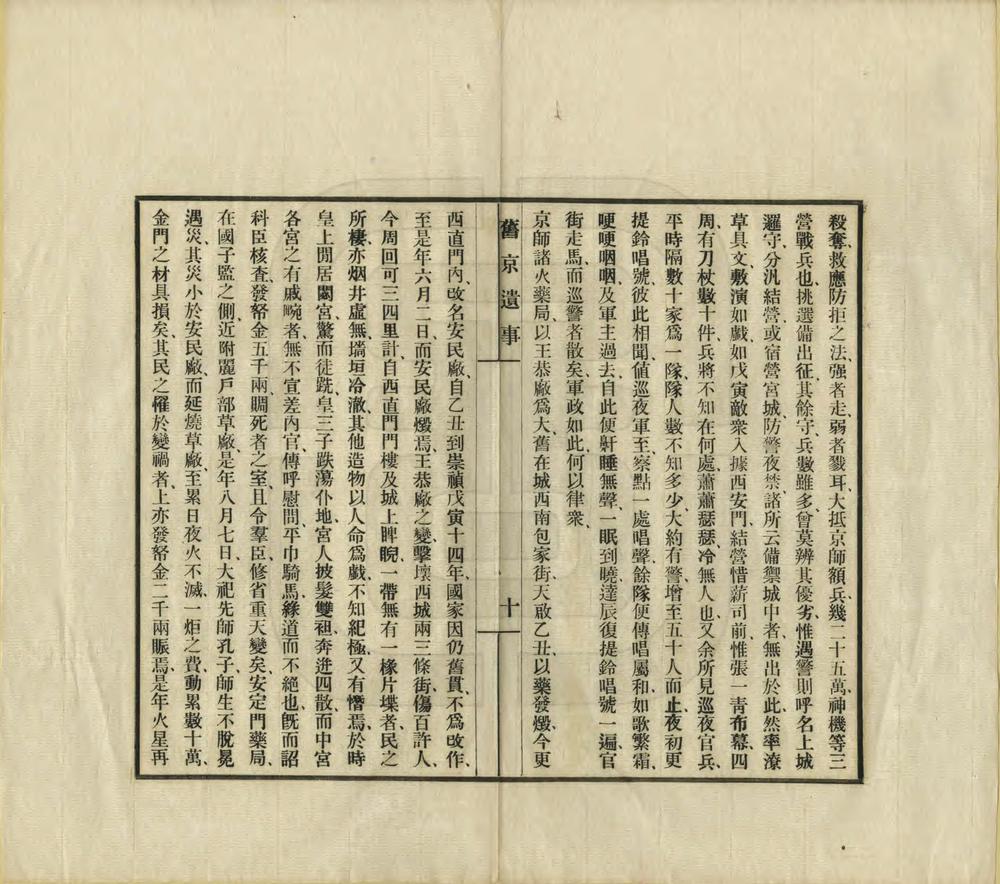 殺奪救應防拒之法、强者走、弱者戮耳、大抵京師額兵幾二十五萬、神機等三
營戰兵也、挑選備出征、其餘守兵數雖多、曾莫辨其優劣、惟遇警則呼名上城
邏守、分汎結營、或宿營宮城、防警夜禁、諸所云備禦城中者、無出於此、然率潦
草具文、敷演如戲、如戊寅敵衆入據西安門、結營惜薪司前、惟張一青布幕、四
周有刀杖數十件、兵將不知在何處、蕭蕭瑟瑟、冷無人也、又余所見巡夜官兵、
平時隔數十家爲一隊、隊人數不知多少、大約有警、增至五十人而止、夜初更
提鈴唱號、彼此相聞、値巡夜軍至、察點一處、唱聲餘隊便傳唱屬和、如歌繁霜、
哽哽咽咽、及軍主過去、自此便鼾睡無聲、一眠到曉、達辰復提鈴唱號一遍、官
街走馬而巡警者散矣、軍政如此、何以律衆、
京師諸火藥局、以王恭廠爲大、舊在城西南包家街、天啟乙丑、以藥發燬、今更
舊京遺事
十
西直門內、改名安民廠、自乙丑到崇禎戊寅十四年、國家因仍舊貫、不爲改作、
至是年六月二日、而安民廠燬焉、王恭廠之變、擊壞西城兩三條街、傷百許人、
今周回可三四里計、自西直門門樓及城上睥睨、一帶無有一椽片堞者、民之
所棲、亦烟井虛無、墻垣冷澈、其他造物以人命爲戲、不知紀極、又有憯焉、於時
皇上閒居閟宮、驚而徒跣、皇三子跌蕩仆地、宮人披髮雙袒、奔迸四散、而中宮
各宮之有戚畹者、無不宣差內官、傳呼慰問、平巾騎馬、緣道而不絶也、既而詔
科臣核查、發帑金五千兩、賙死者之室、且令羣臣修省、重天變矣、安定門藥局、
在國子監之側、近附麗戶部草廠、是年八月七日、大祀先師孔子、師生不脫冕
遇災、其災小於安民廠、而延燒草廠、至累日夜火不滅、一炬之費、動累數十萬、
金門之材具損矣、其民之罹於變禍者、上亦發帑金二千兩賑焉、是年火星再